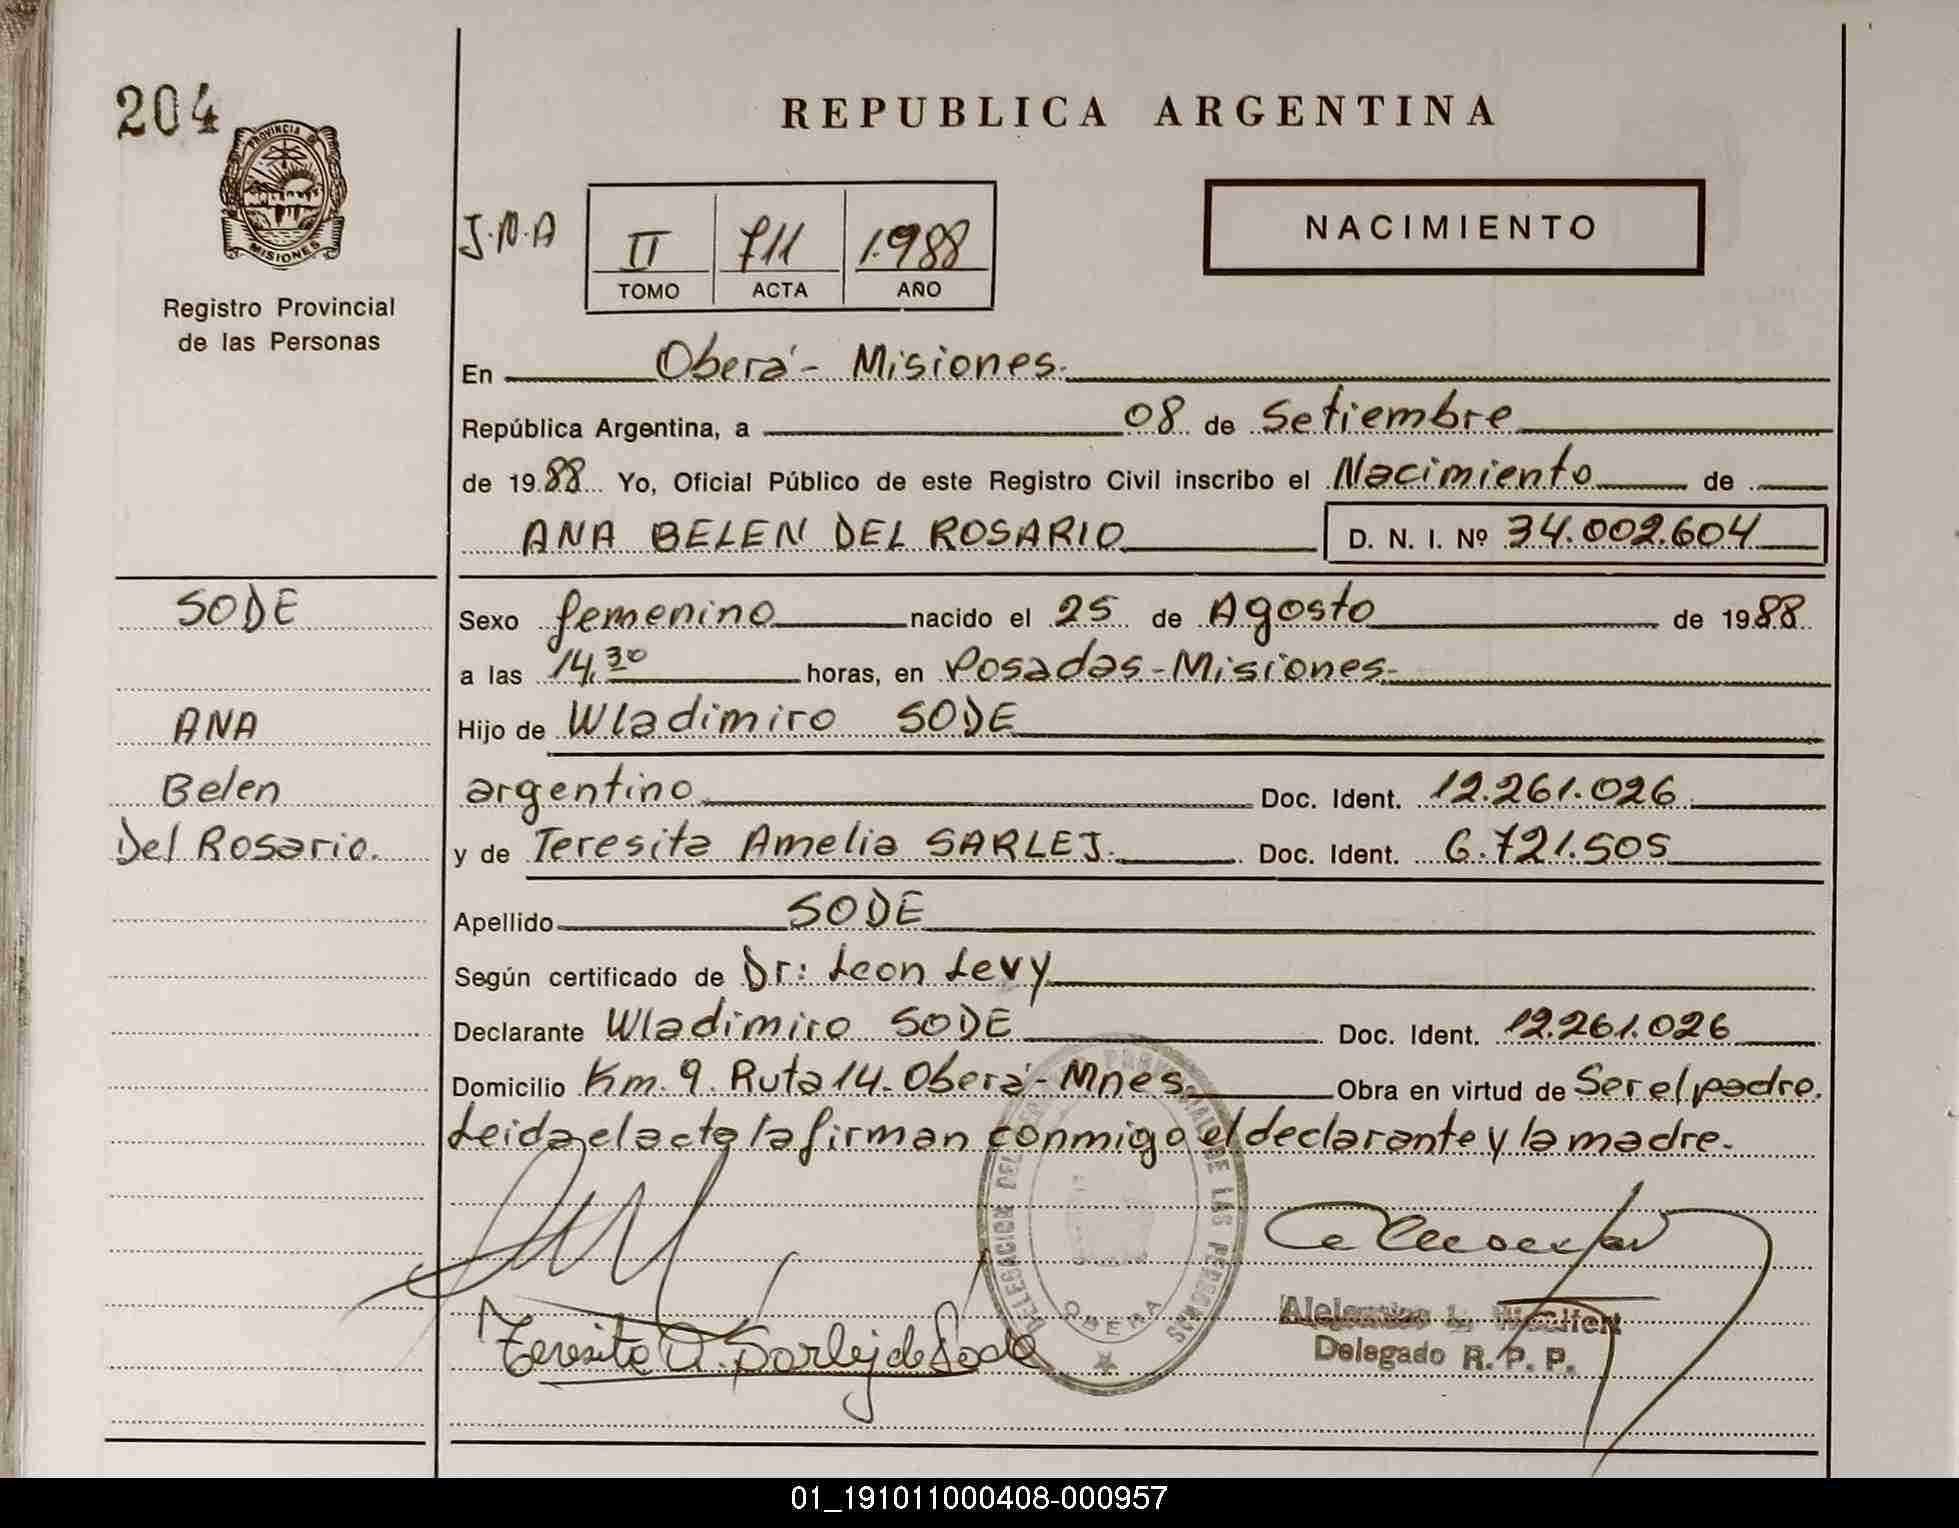 204
PROVINCIA DE
MISIONES
Registro Provincial
de las Personas
REPUBLICA ARGENTINA
J.N.A
II 711 1.988
TOMO ACTA AÑO
NACIMIENTO
En Oberá - Misiones.
República Argentina, a 08 de Setiembre
de 1988 Yo, Oficial Público de este Registro Civil inscribo el Nacimiento de
ANA BELEN DEL ROSARIO D. N. I. Nº 34.002.604
SODE
ANA
Belen
Del Rosario.
Sexo femenino nacido el 25 de Agosto de 1988
a las 14,30 horas, en Posadas - Misiones-
Hijo de Wladimiro SODE
argentino Doc. Ident. 12.261.026
y de Teresita Amelia SARLEJ. Doc. Ident. 6.721.505
Apellido SODE
Según certificado de Dr: Leon Levy
Declarante Wladimiro SODE Doc. Ident. 12.261.026
Domicilio Km. 9. Ruta 14. Oberá - Mnes. Obra en virtud de Ser el padre.
Leida el acta la firman conmigo el declarante y la madre.
DELEGACION DEL REGISTRO PROVINCIAL DE LAS PERSONAS
OBERA
Teresita A. Sarlej de Sode
Delegado R. P. P.
01_191011000408-000957